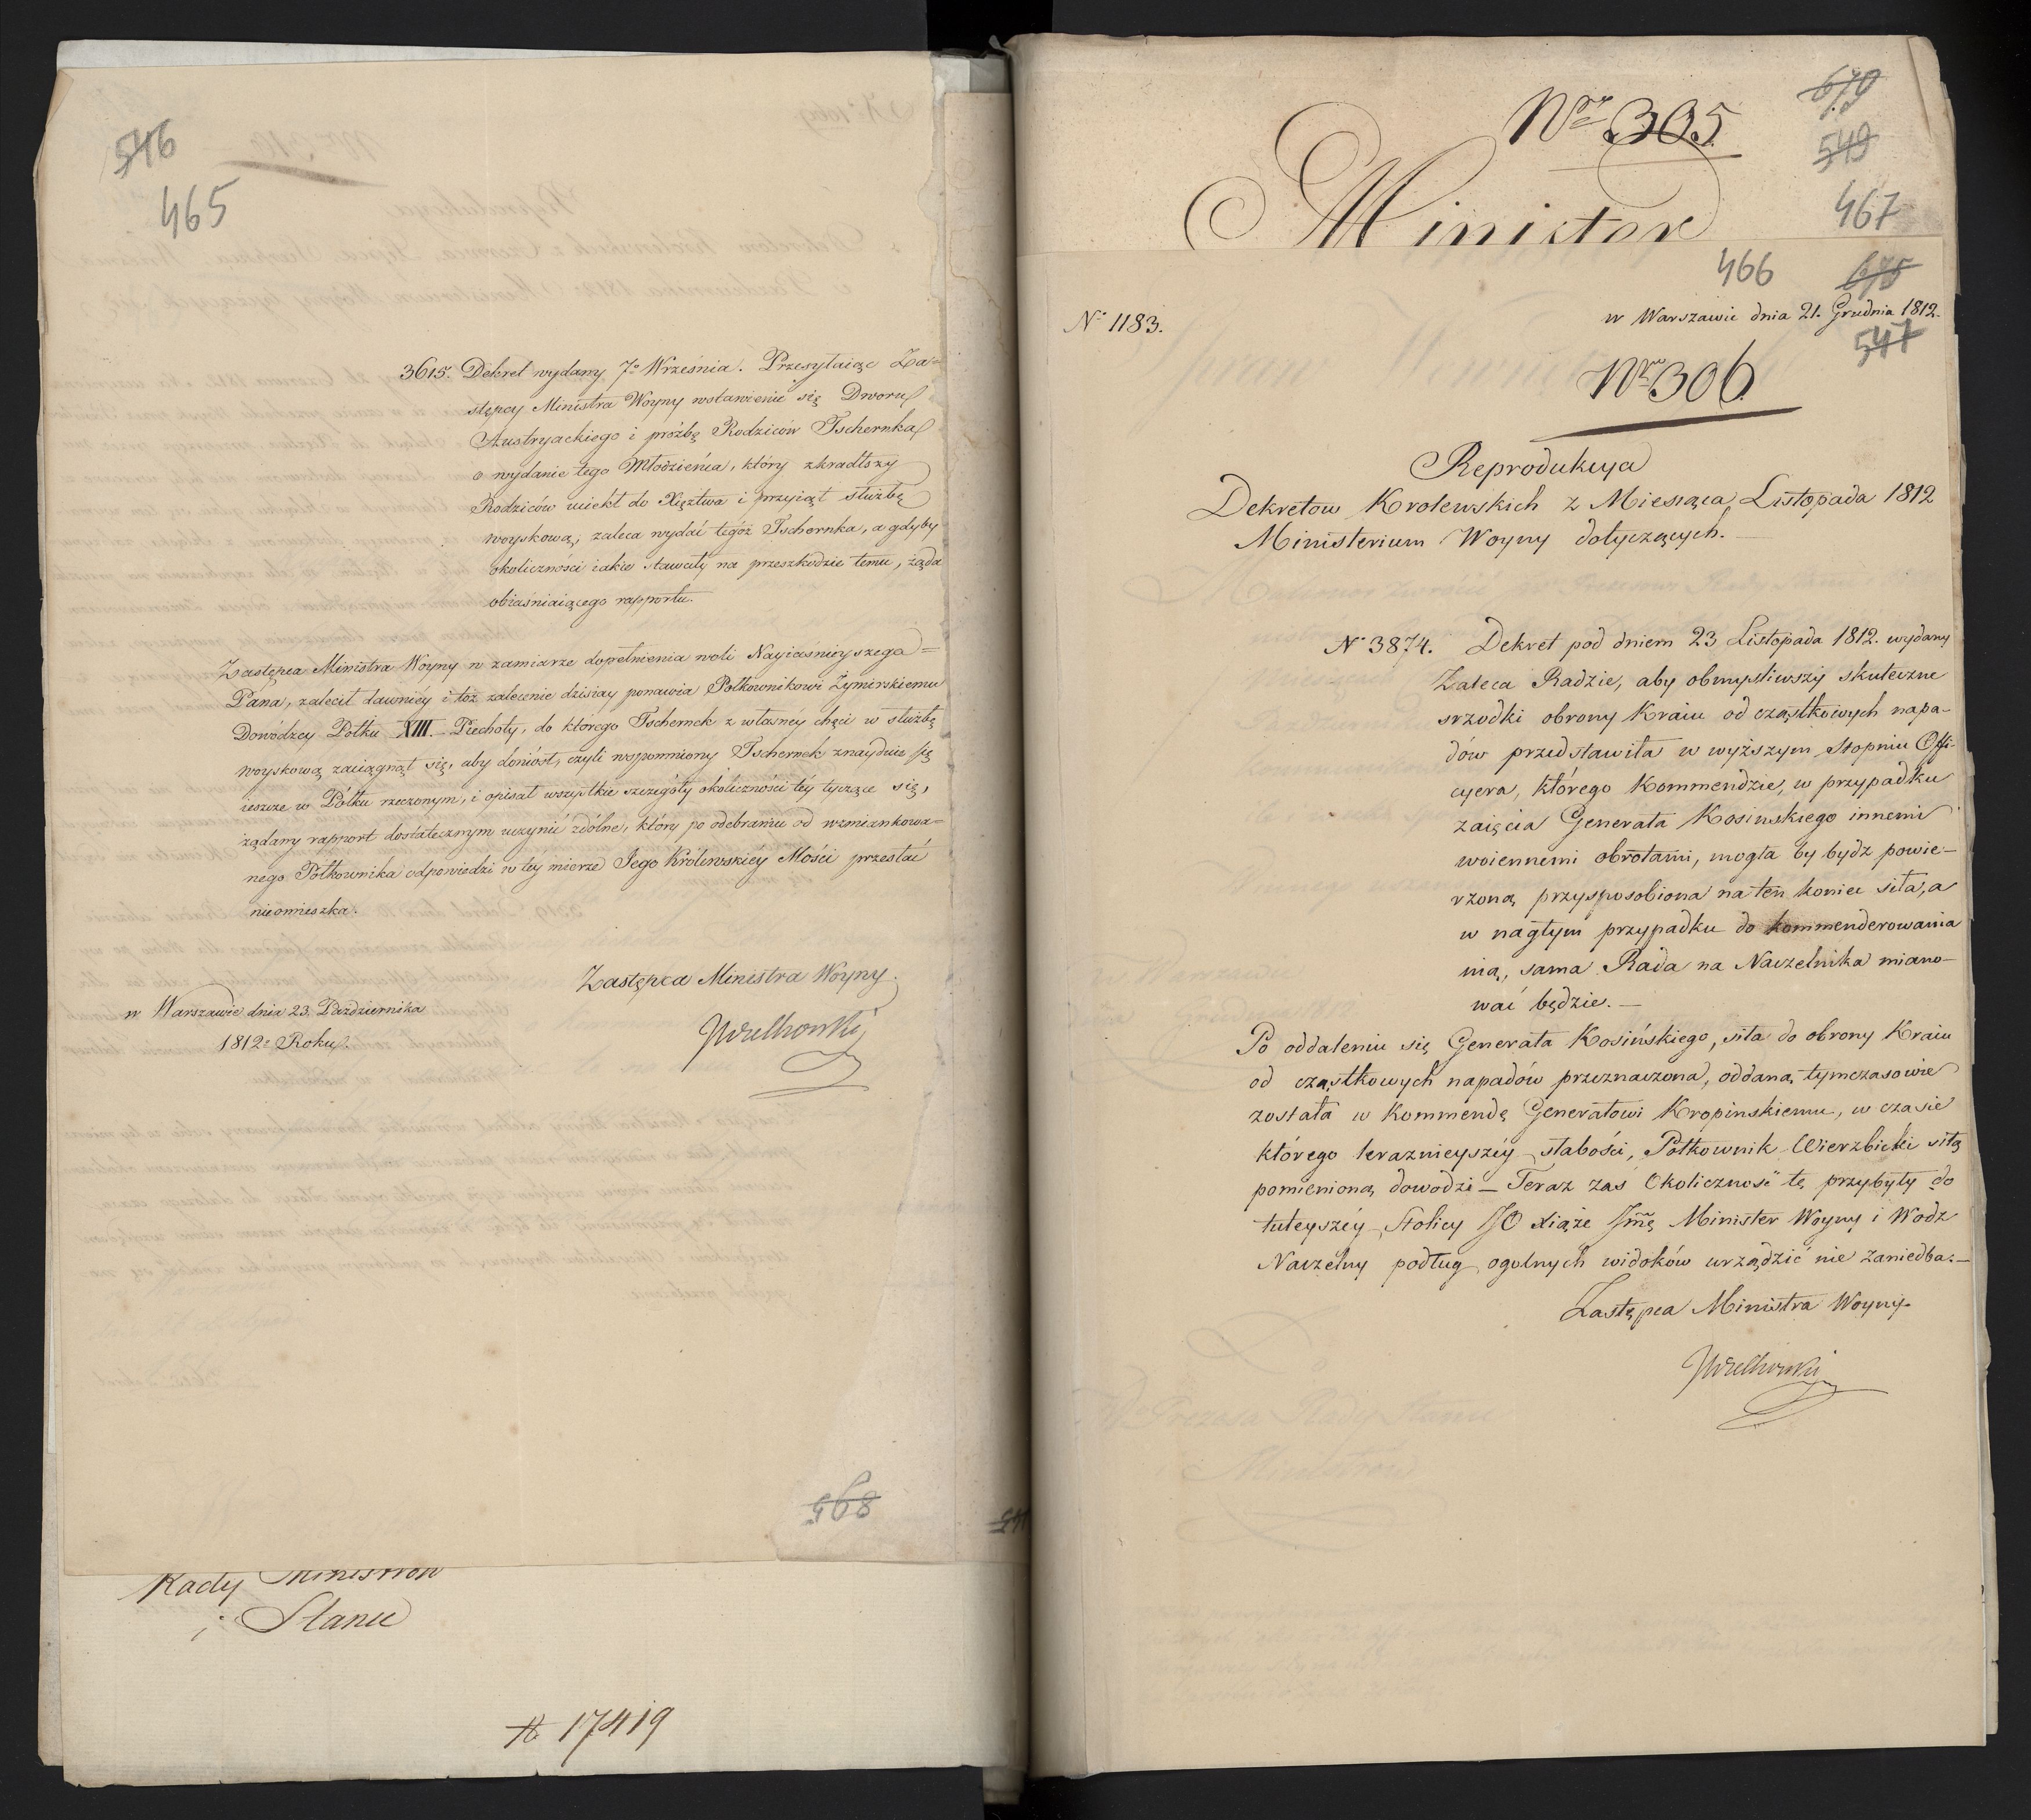 546
465
3615. Dekret wydany 7º Września. Przesyłaiąc Za-
stępcy Ministra Woyny wstawienie się Dworu
Austryackiego i prózbę Rodziców Tschernka
o wydanie tego Młodzieńca, który zkradłszy
Rodziców uciekł do Xięztwa i przyiął służbę
woyskową; zaleca wydać tegóż Tschernka, a gdyby
okoliczności iakie stawały na przeszkodzie temu, żąda
obiaśniaiącego rapportu.
Zastępca Ministra Woyny w zamiarze dopełnienia woli Nayiaśnieyszego=
Pana, zalecił dawniéy i toż zalecenie dzisiay ponawia Półkownikowi Żymirskiemu
Dowódzcy Półku XIII. Piechoty, do którego Tschernek z własnéy chęci w służbę
woyskową zaciągnął się, aby doniósł, czyli wspomniony Tschernek znayduie się
ieszcze w Półku rzeczonym, i opisał wszystkie szczegóły okoliczności téy tyczące się,
żądany rapport dostatecznym uczynić zdólne, który po odebraniu od wzmiankowa=
nego Półkownika odpowiedzi w téy mierze Jego Królewskiéy Mości przesłać
nieomieszka.
Zastępca Ministra Woyny.
w Warszawie dnia 23. Października
1812º Roku.
JWielhorski
568
Rady Ministrów
i Stanu
17419
Nr 305
679
549
467
Minister
466
675
Nº 1183.
w Warszawie dnia 21. Grudnia 1812.
547
Nr 306
Reprodukcya
Dekretow Krolewskich z Miesiąca Listopada 1812
Ministerium Woyny dotyczących.—
Nº 3874. Dekret pod dniem 23 Listopada 1812. wydany
Zaleca Radzie, aby obmyśliwszy skuteczne
srzodki obrony Kraiu od cząstkowych napa-
dów przedstawiła w wyższym Stopniu Offi-
cyera, którego Kommendzie, w przypadku
zaięcia Generała Kosinskiego innemi
woiennemi obrotami, mogła by bydz powie-
rzoną przysposobiona na ten koniec siła, a
w nagłym przypadku do kommenderowania
nią, sama Rada na Naczelnika miano-
wać będzie.—
Po oddaleniu się Generała Kosińskiego, siła do obrony Kraiu
od cząstkowych napadów przeznaczona, oddaną tymczasowie
została w Kommendę Generałowi Kropinskiemu, w czasie
którego teraznieyszéy słabości, Półkownik Wierzbicki siłą
pomienioną dowodzi — Teraz zaś Okoliczność tę przybyły do
tuteyszéy Stolicy JO Xiąże Jmć Minister Woyny i Wodz
Naczelny podług ogolnych widoków urządzić nie zaniedba.—
Zastępca Ministra Woyny.
JWielhorski